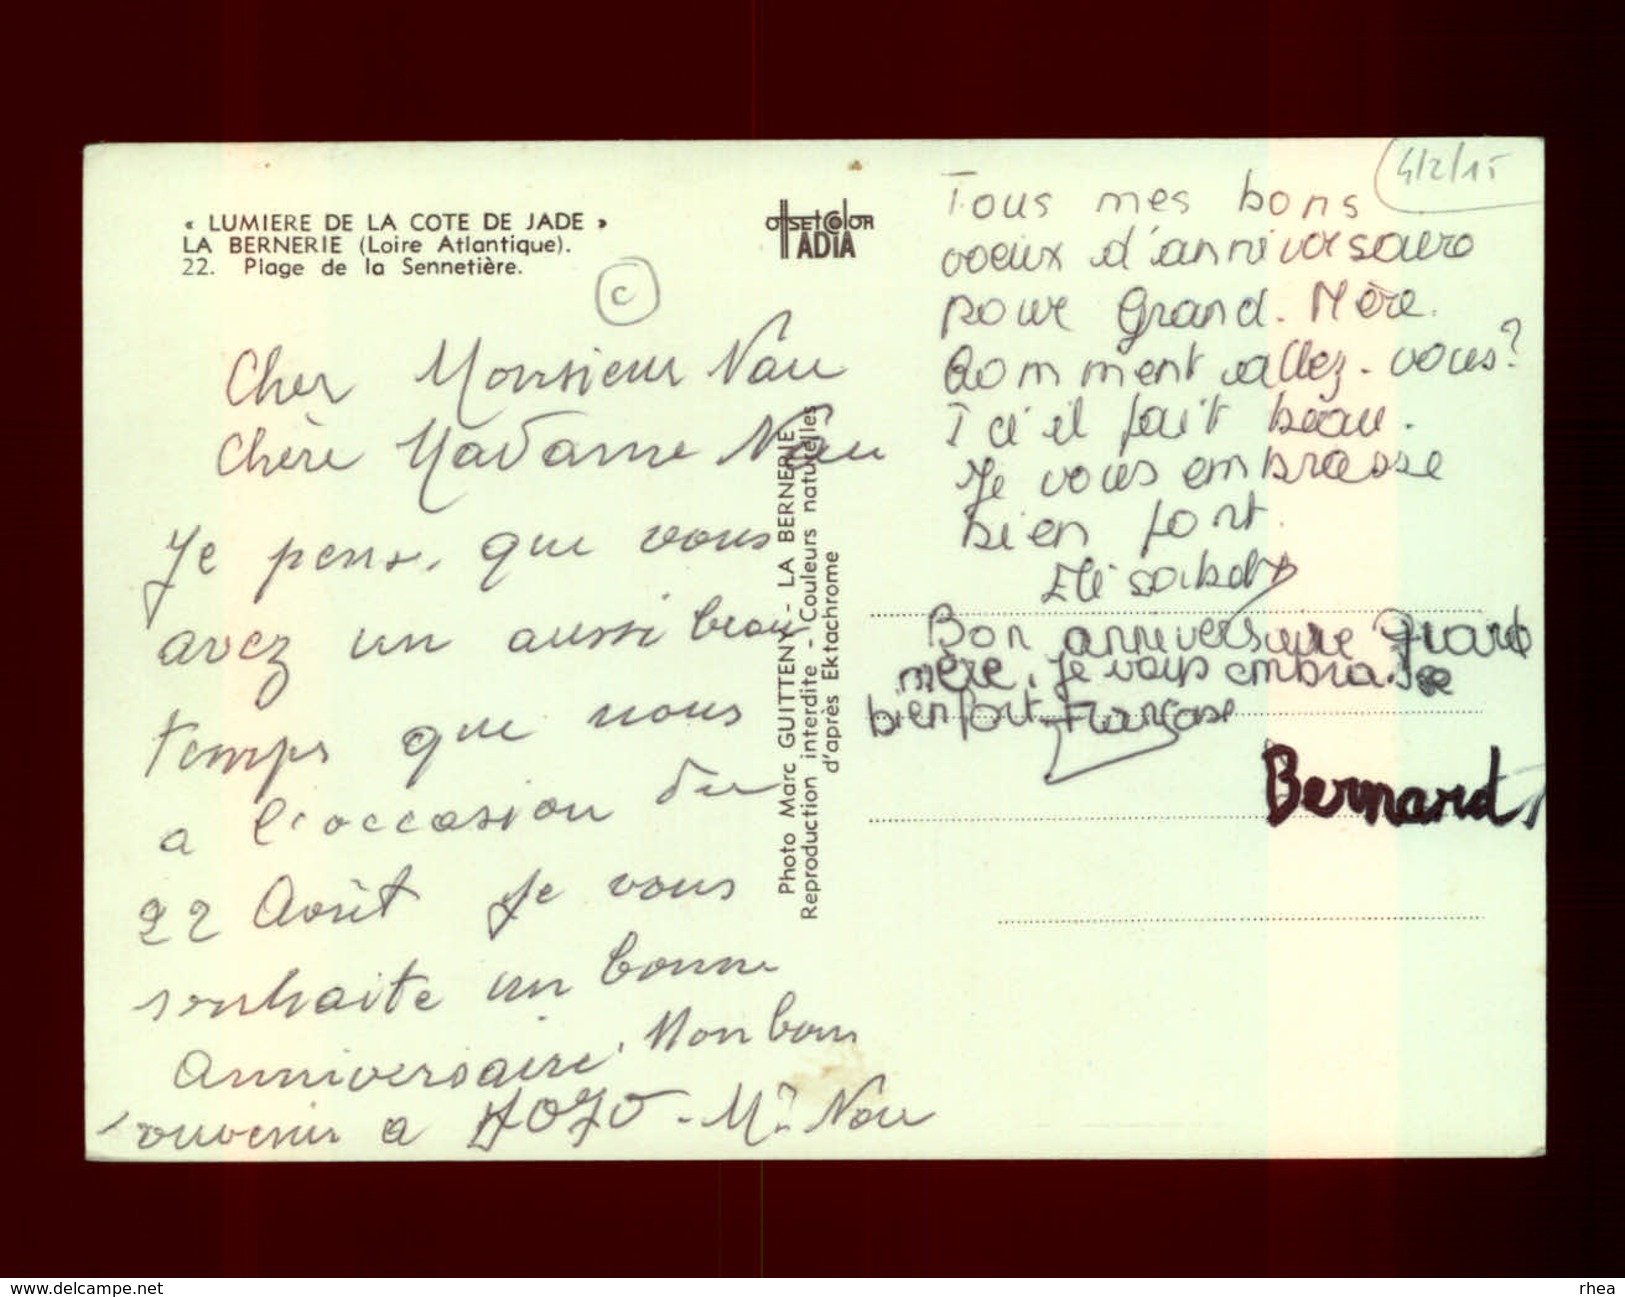 « LUMIERE DE LA COTE DE JADE »
LA BERNERIE (Loire Atlantique).
22. Plage de la Sennetière.
C
OFFSET COLOR
ADIA
Cher Monsieur Nau
Chère Madame Nau
Je pense, que vous
avez un aussi beau
temps que nous
a l'occasion du
22 Août je vous
souhaite un bonne
anniversaire. Mon bons
souvenir a JOJO - Mr Nau
Photo Marc GUITTENY - LA BERNERIE
Reproduction interdite - Couleurs naturelles
d'après Ektachrome
4/2/15
Tous mes bons
voeux d'anniversaire
pour Grand. Mère.
Comment allez-vous?
Ici il fait beau.
Je vous embrasse
bien fort.
Elisabeth
Bon anniversaire Grand
mère. Je vous embrasse
bien fort Françoise
Bernard
www.delcampe.net
rhea